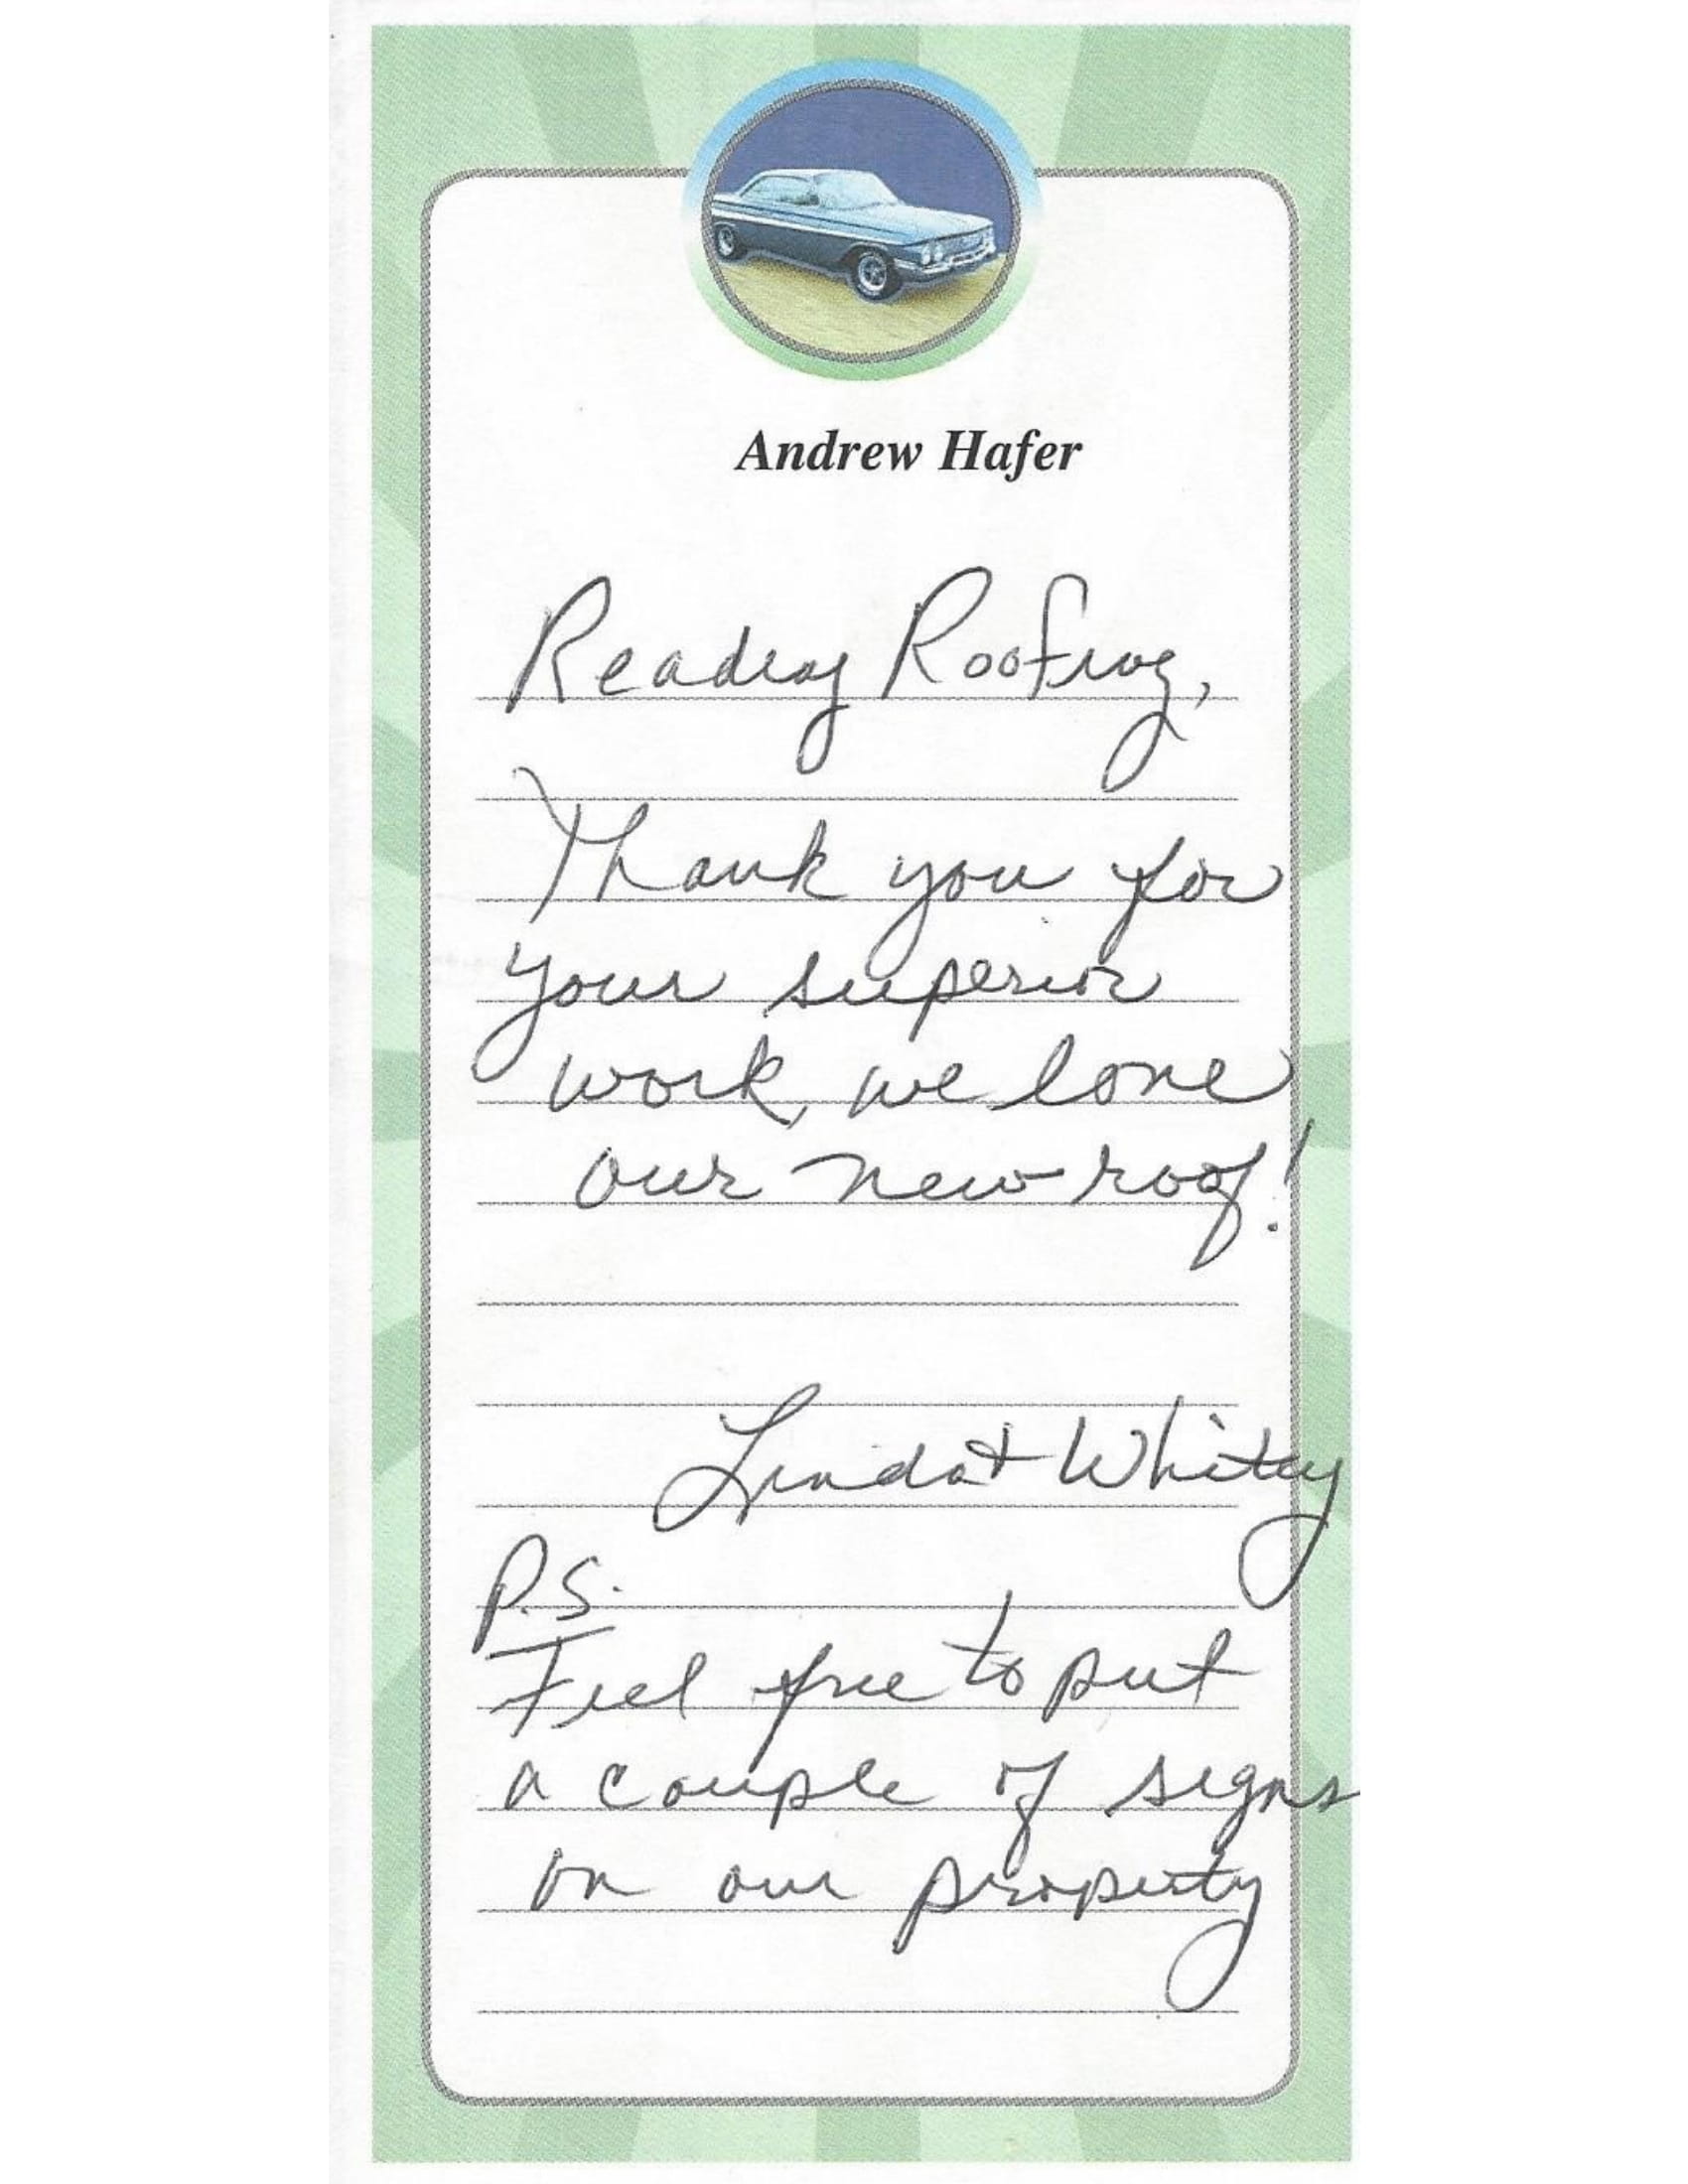 Andrew Hafer
Reading Roofing,
Thank you for
your superior
work, we love
our new roof!
Linda & Whitey
P.S.
Feel free to put
a couple of signs
on our property